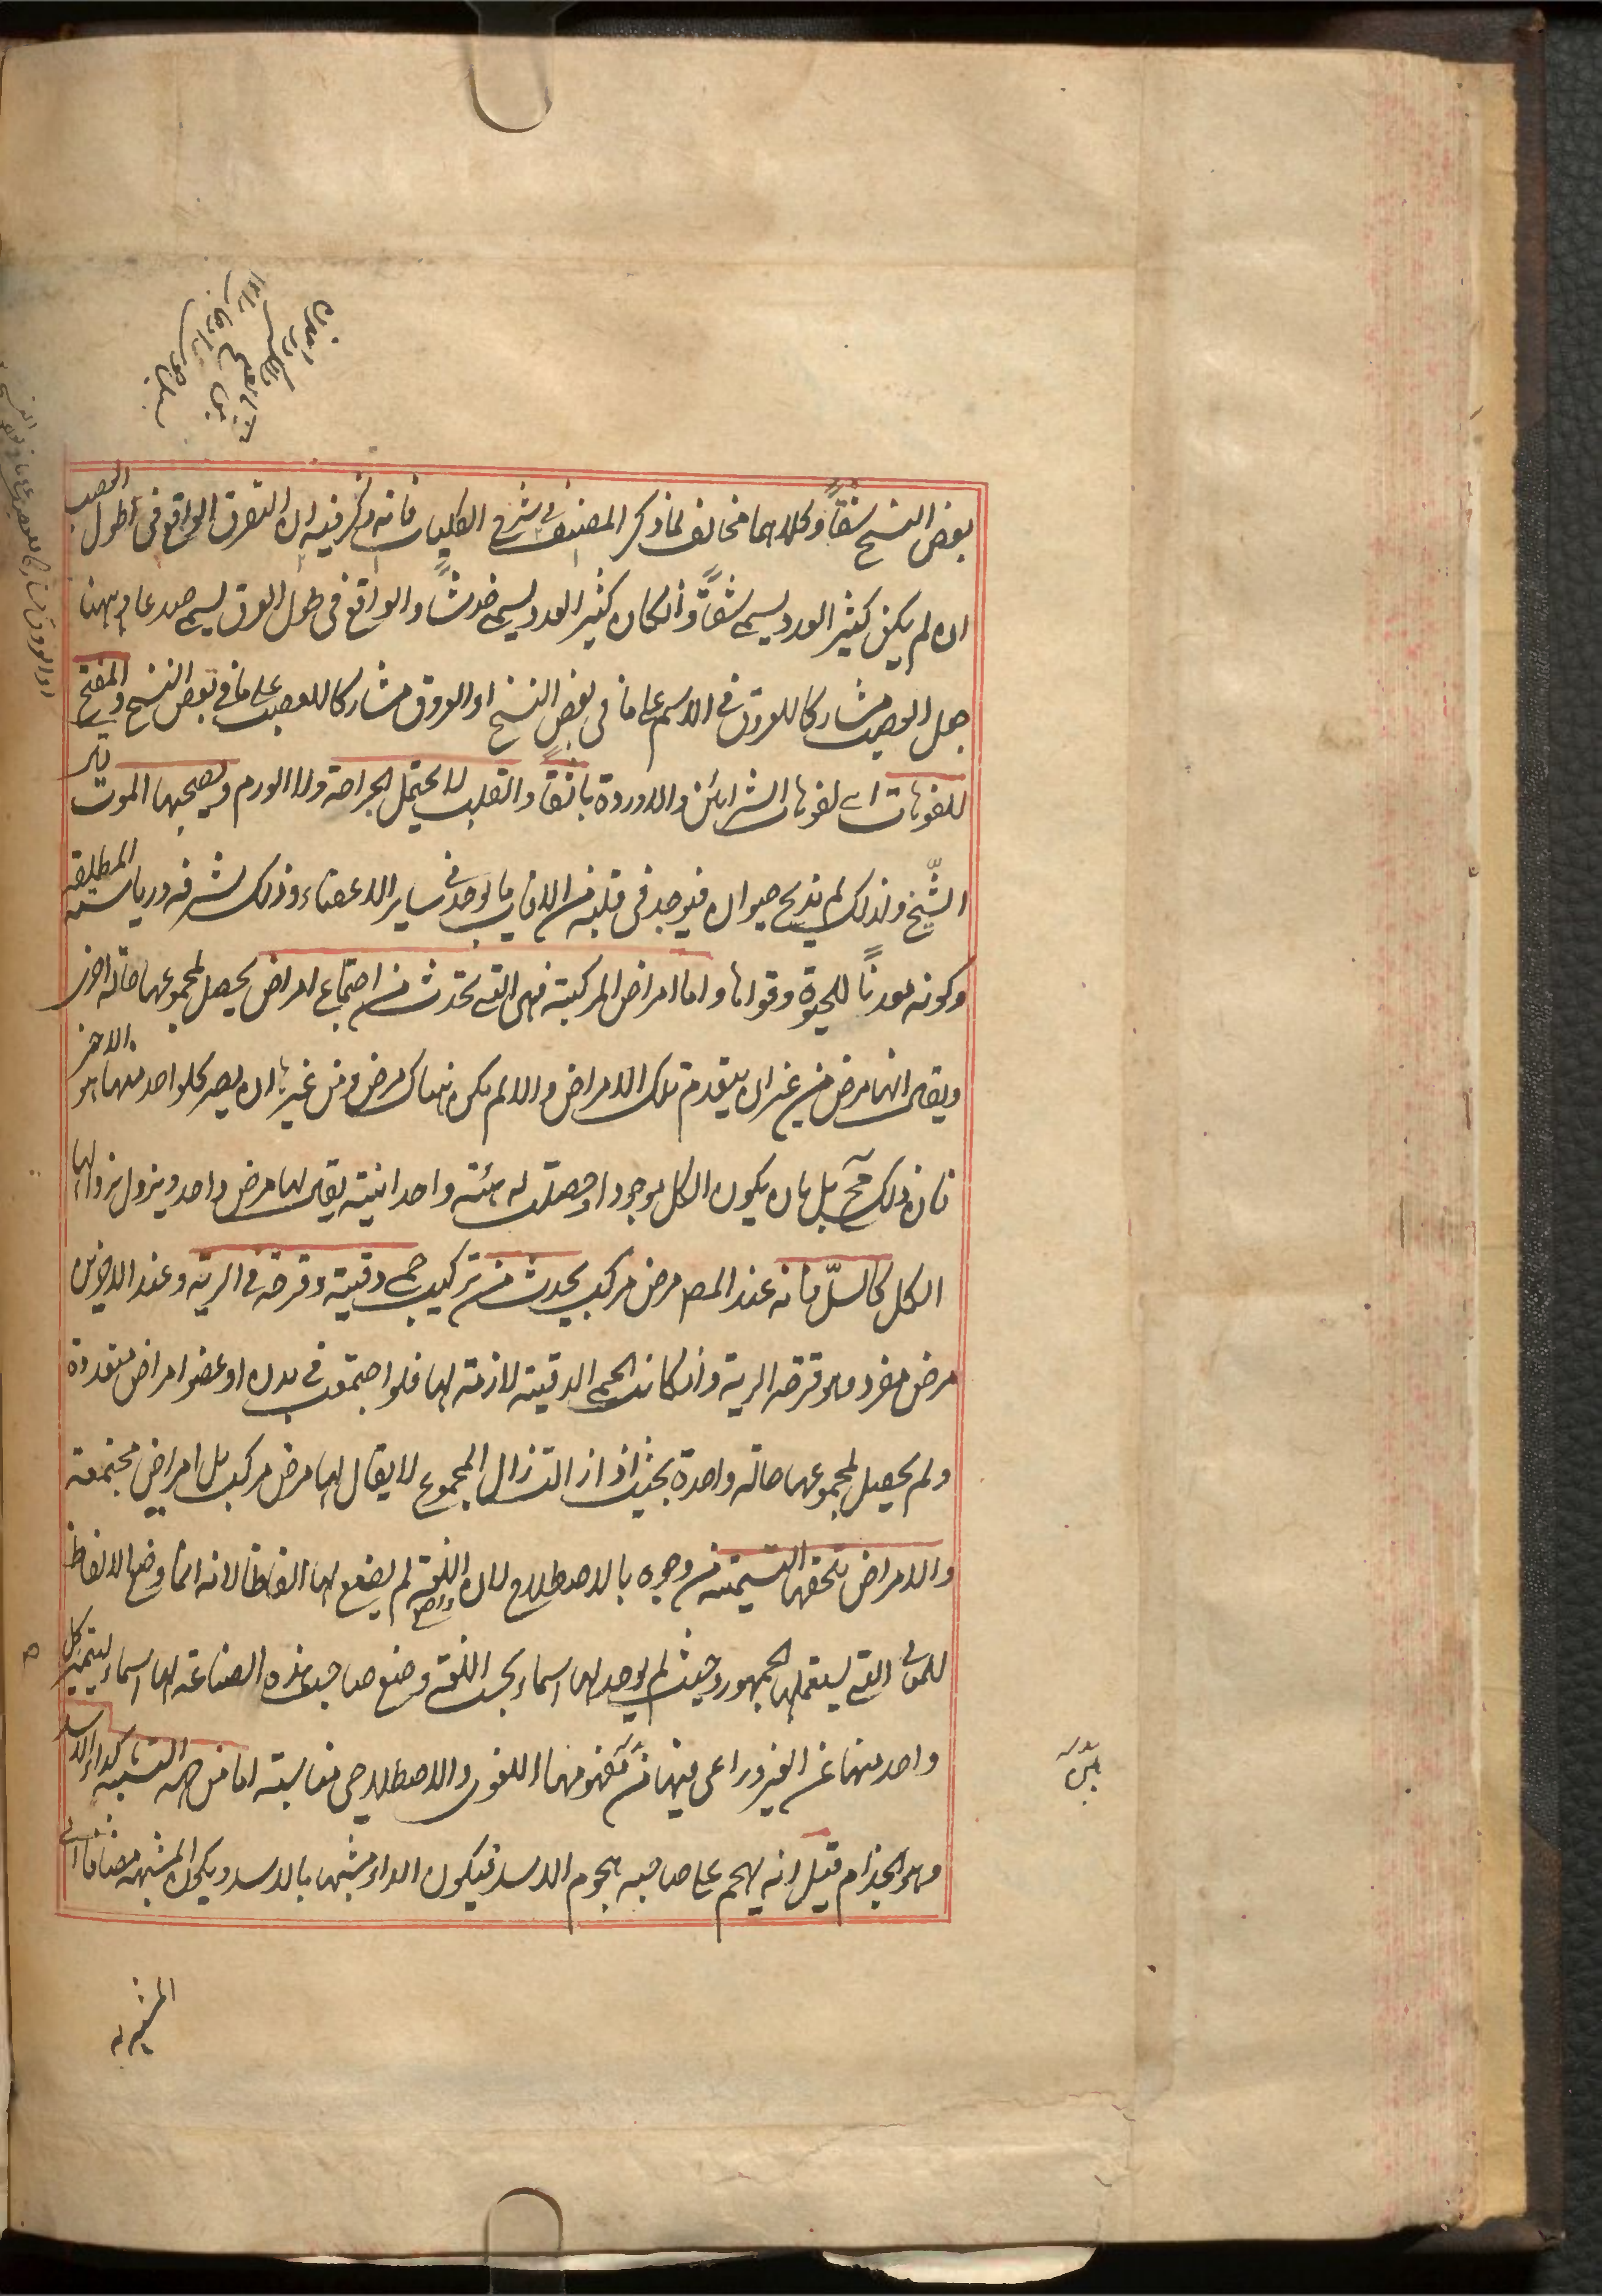 بعض النسخ شقاً وكلاهما مخالف لما ذكر المصنف في شرح الكليات فانه ذكر فيه ان التفرق الواقع في طول العصب
ان لم يكن كثير العدد يسمى شقاً وان كان كثير العدد يسمى خدشاً والواقع في طول العرق يسمى صدعا وههنا
جعل العصب مشاركا للعروق في الاسم على ما في بعض النسخ او العروق مشاركا للعصب على ما في بعض النسخ والمفتح
للفوهات اى لفوهات الشرائين والاوردة بثقاً والقلب لا يحتمل الجراحة ولا الورم ويصحبها الموت
الشيخ ولذلك لم يذبح حيوان فيوجد في قلبه من الافات ما يوجد في ساير الاعضاء وذلك لشرفه ورياسته المطلقة
وكونه معدنًا للحيوة وقواها واما امراض المركبة فهى التي تحدث من اجتماع امراض يحصل لمجموعها حالة اخرى
ويقال انها مرض من غير ان يتقدم تلك الامراض والا لم يكن هناك مرض ومن غير ان يصير كل واحد منها هو الاخر
فان ذلك مح بل بان يكون الكل موجودا وحصلت له هيئة واحدانية يقال لها مرض واحد ويزول بزوالها
الكل كالسلّ فانه عند المص مرض مركب يحدث من تركيب حمى دقية وقرحة في الرية وعند الاخرين
مرض مفرد وهو قرحة الرية وان كانت الحمى الدقية لازمة لها فلو اجتمعت في بدن او عضو امراض متعددة
ولم يحصل لمجموعها حالة واحدة بحيث اذا زالت زال المجموع لا يقال لها مرض مركب بل امراض مجتمعة
والامراض تلحقها التسمية من وجوه بالاصطلاح لان واضع اللغة لم يضع لها الفاظا لانه انما وضع الالفاظ
للمعانى التي يستعملها الجمهور وحيث لم يوجد لها اسماء بحسب اللغة وضع صاحب هذه الصناعة لها اسماء ليتميز كل
واحد منها عن الغير وراعى فيها من مفهومها اللغوى والاصطلاحى مناسبة اما من جهة التشبيه كداء الاسد
وهو الجذام قيل انه يهجم على صاحبه هجوم الاسد فيكون الداء مشبها بالاسد ويكون المشبه مضافا الى
المشبه به